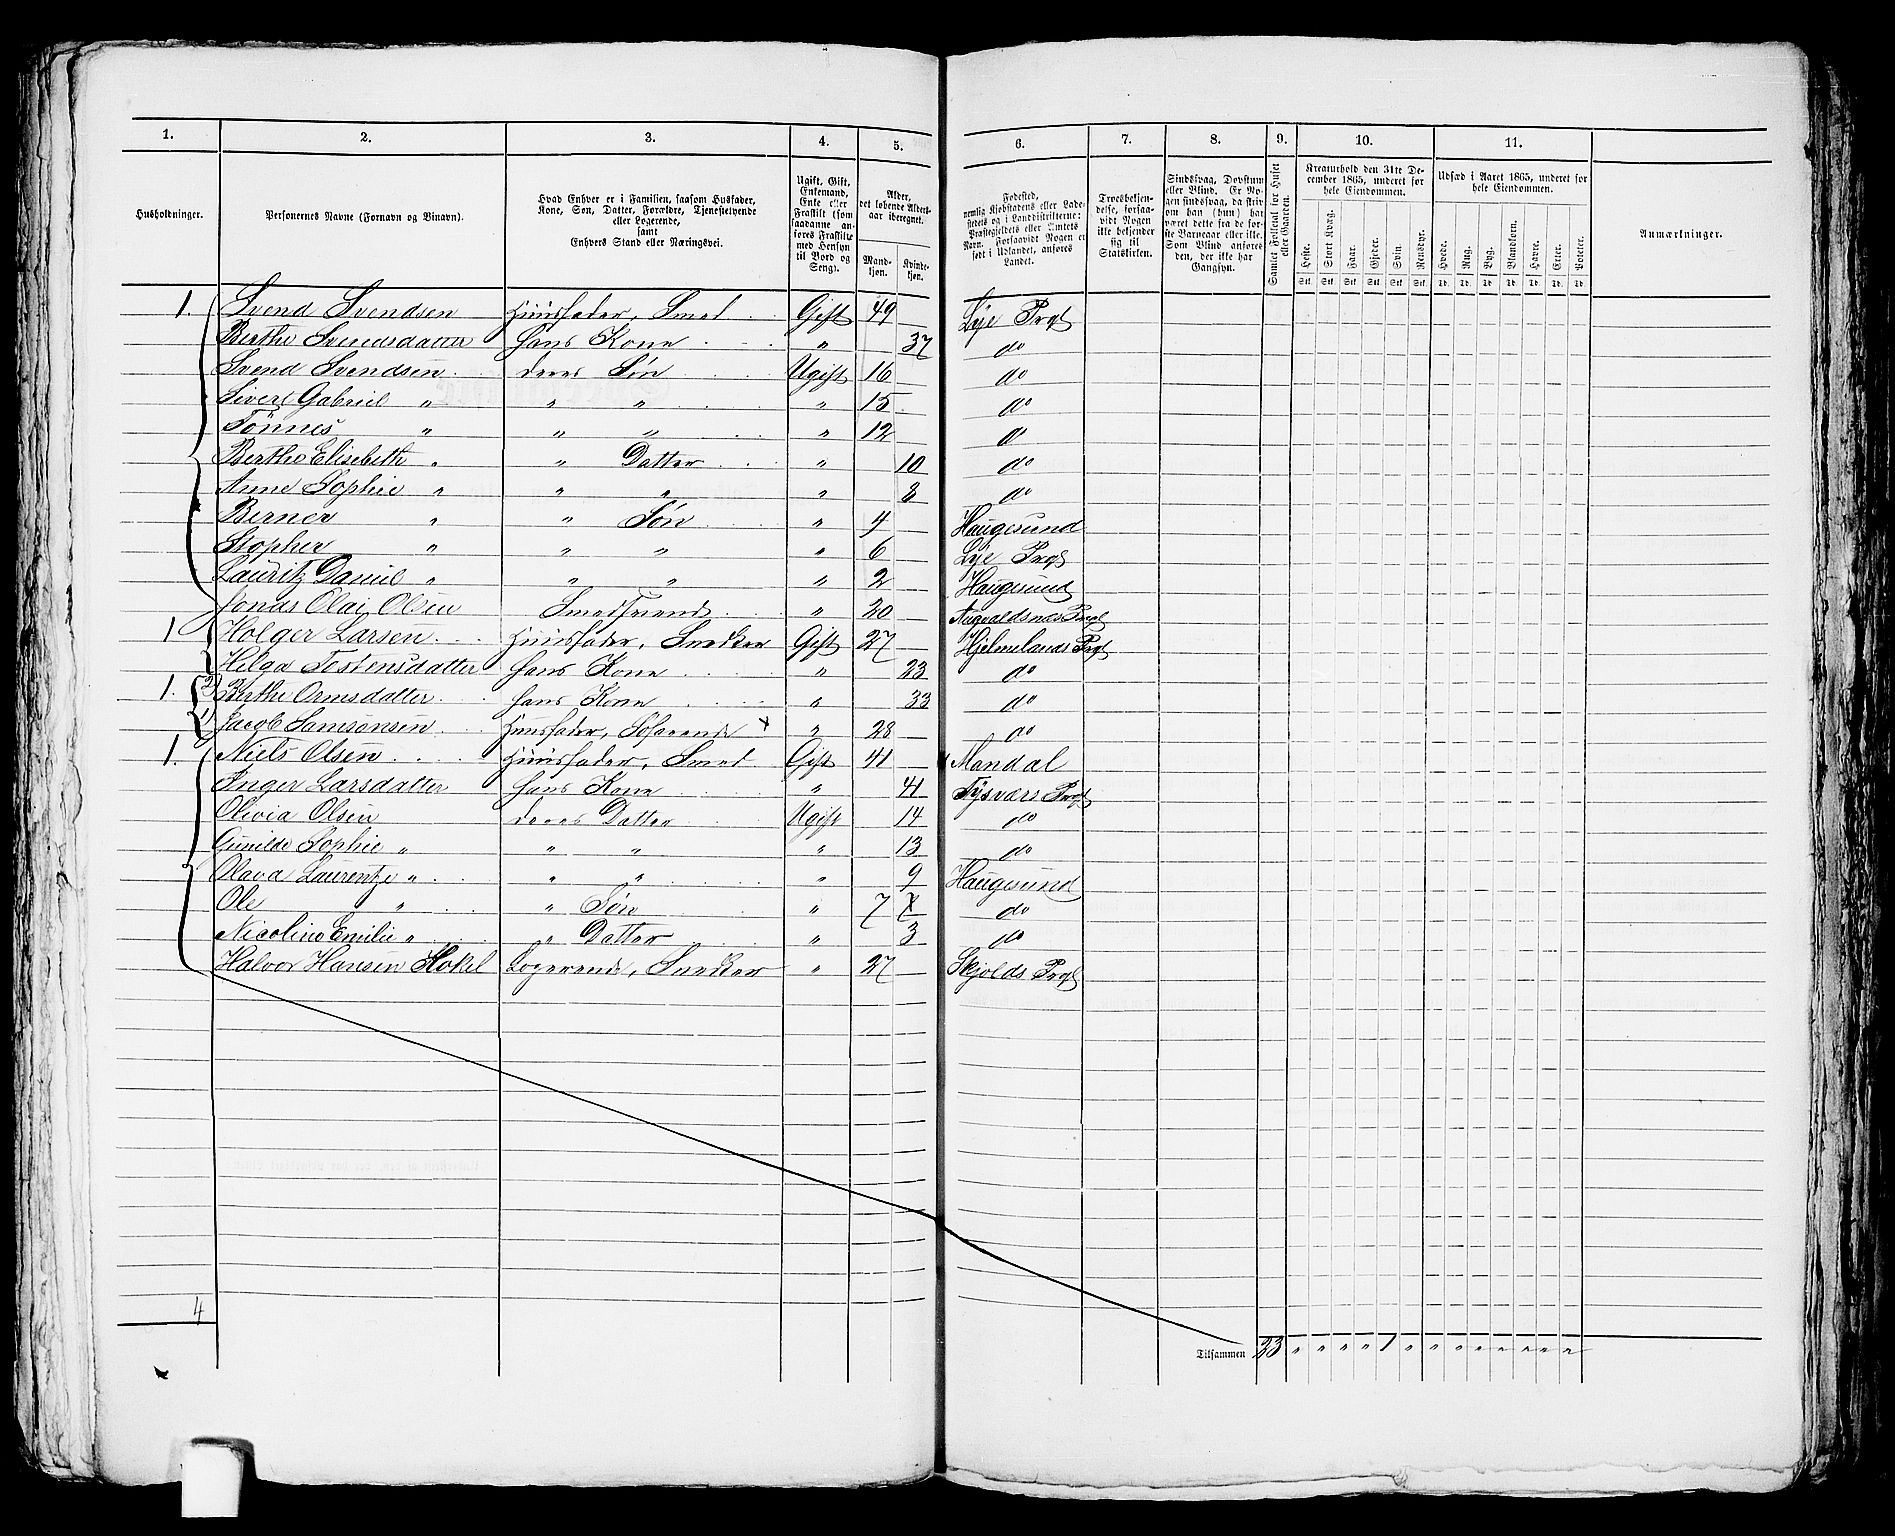 1. 2. 3. 4. 5. 6. 7. 8. 9. 10. 11.
Husholdninger.
Personernes Navne (Fornavn og Binavn).
Hvad Enhver er i Familien, saasom Husfader, Kone, Søn, Datter, Forældre, Tjenestetyende eller logerende, samt Enhvers Stand eller Næringsvei.
Ugift, Gift, Enkemand, Enke eller Fraskilt (som saadanne anføres Fraskilte med Hensyn til Bord og Seng).
Alder, det løbende Aldersaar iberegnet.
Mandkjøn. Kvindekjøn.
Fødested, nemlig Kjøbstadens eller Ladestedets og i Landdistrikterne: Præstegjeldets eller Amtets Navn. Forsaavidt Nogen er født i Udlandet, anføres Landet.
Troesbekjendelse, forsaavidt Nogen ikke bekjender sig til Statskirken.
Sindssvag, Døvstum eller Blind. Er Nogen sindssvag, da skrives om han (hun) har været dette fra de første Barneaar eller ikke. Som Blind anføres den, der ikke har Gangsyn.
Gamlet Folketal for Huset eller Gaarden.
Kreaturhold den 31te December 1865, underet for hele Eiendommen.
Heste. Stort Kvæg. Faar. Gjeder. Svin. Rensdyr.
Stk. Stk. Stk. Stk. Stk. Stk.
Udsæd i Aaret 1865, underet for hele Eiendommen.
Hvede. Rug. Byg. Blandkorn. Havre. Erter. Poteter.
Td. Td. Td. Td. Td. Td. Td.
Anmærkninger.
1. Svend Svendsen Huusfader, Smed Gift 49 Lye Prgl
Berthe Svendsdatter Hans Kone " 37 do
Svend Svendsen deres Søn Ugift 16 do
Sivert Gabriel " " " " 15 do
Tönnes " " " " 12 do
Berthe Elisebeth " " Datter " 10 do
Anne Sophie " " " " 8 do
Berner " " Søn " 4 Haugesund
Stopher " " " " 6 Lye Prgl
Lauritz Daniel " " " " 2 Haugesund
Jonas Olai Olsen Smedsvend " 20 Augvaldsnæs Prgl
1 Holger Larsen Huusfader, Snedker Gift 27 Hjelmelands Prgl
Helga Tostensdatter Hans Kone " 23 do
1. 2) Berthe Ormsdatter Hans Kone " 33 do
1) Jacob Samsonsen Huusfader, Søfarende x " 28 do
1. Niels Olsen Huusfader, Smed Gift 41 Mandal
Inger Larsdatter Hans Kone " 41 Tysværs Prgl
Olivia Olsen deres Datter Ugift 14 do
Gunilde Sophie " " " " 13 do
Olava Laurentze " " " " 9 Haugesund
Ole " " Søn " 7 do
Nicoline Emilie " " Datter " 3 do
Halvor Hansen Stokel Logerende, Snedker " 27 Skjolds Prgl
4
Tilsammen 23 " " " " 1 " " " " " " " "